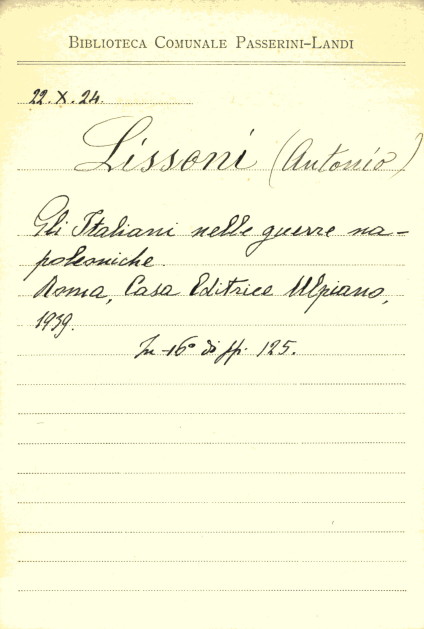 BIBLIOTECA COMUNALE PASSERINI-LANDI
22. X. 24.
Lissoni (Antonio)
Gli Italiani nelle guerre na-
poleoniche.
Roma, Casa Editrice Ulpiano,
1939.
In -16° di pp. 125.